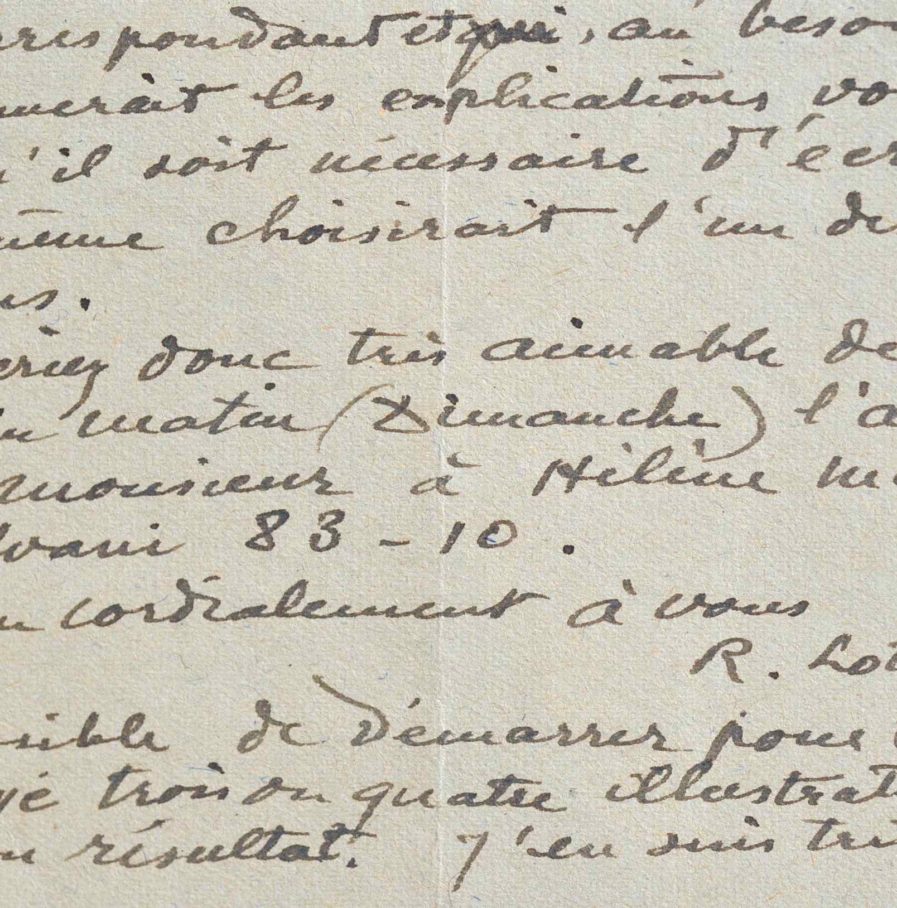 rrespondant et qui, au beso
nnerait les explications vo
'il soit nécessaire d'écr
même choisirait l'un de
us.
eriez donc très aimable de
in matin (Dimanche) l'a
monsieur à Hélène m
lvani 83-10.
n cordialement à vous
R. Lot
sible de démarrer pour
yé trois ou quatre illustrat
un résultat. J'en suis trè